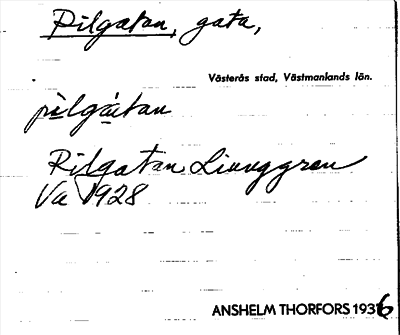 Pilgatan, gata,
Västerås stad, Västmanlands län.
pilgatan
Pilgatan Ljunggren
Va 1928
ANSHELM THORFORS 1936